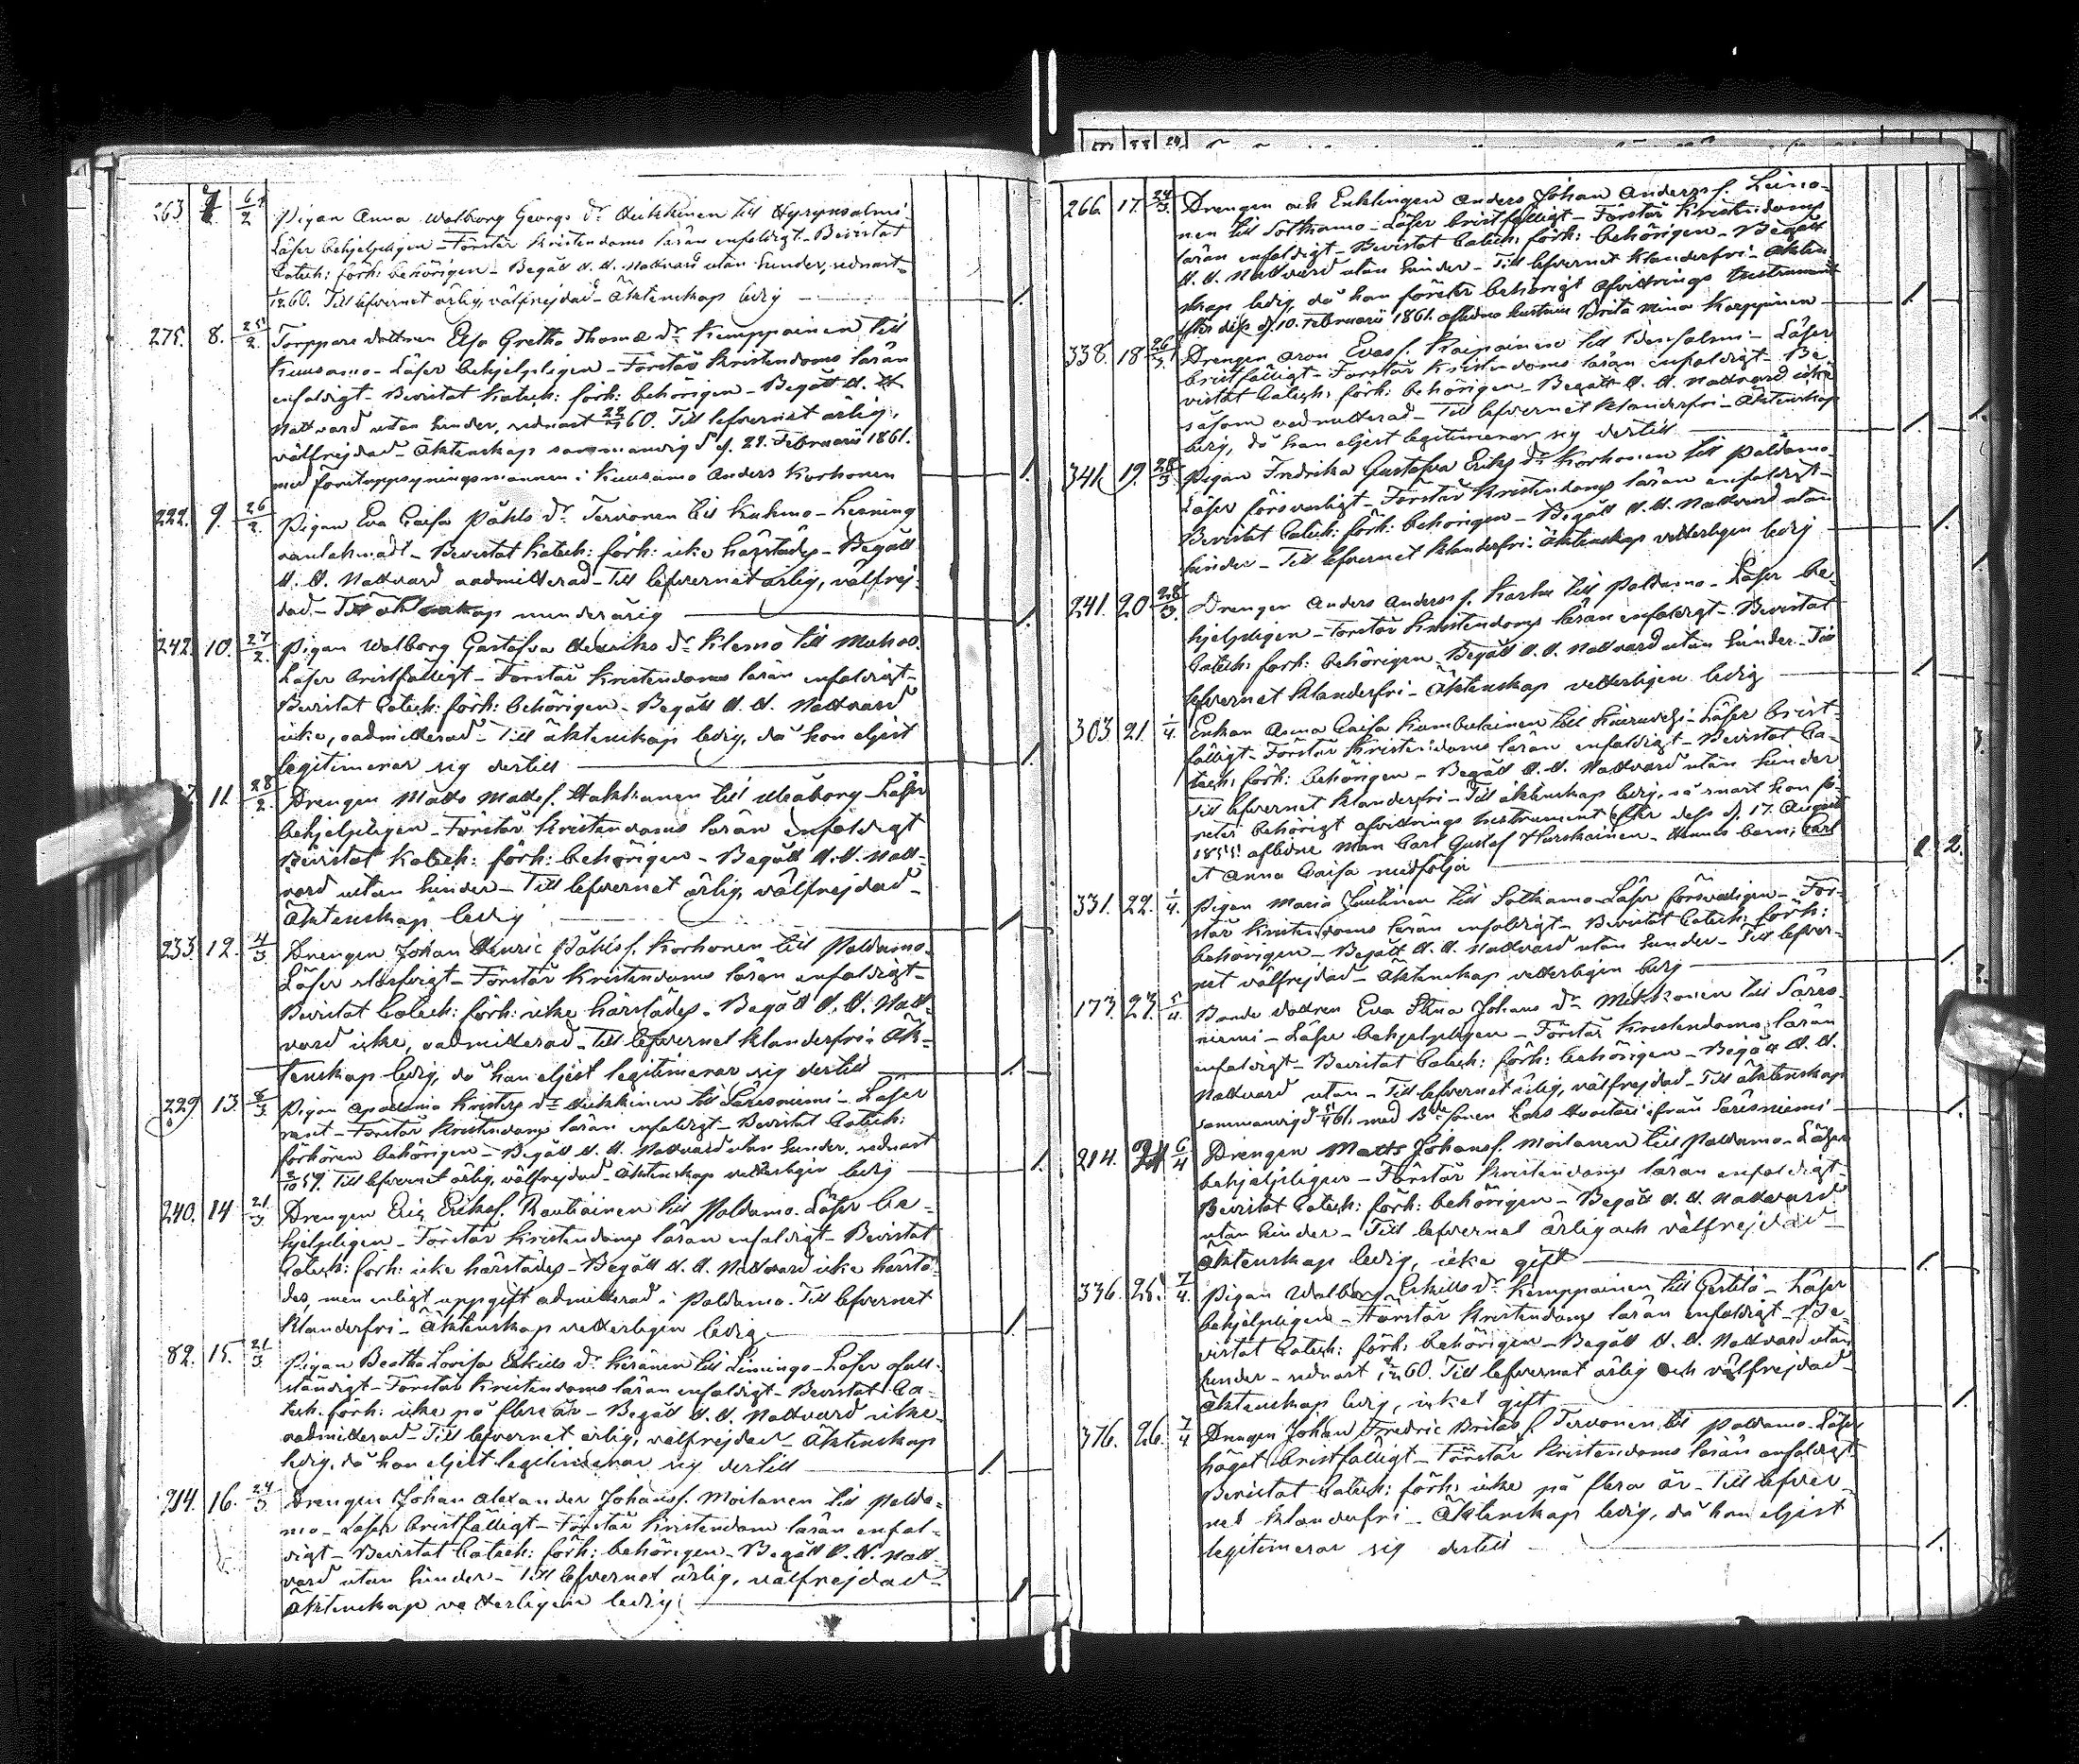 263. 7. 6/2 Pigan Anna Walborg Georgs dr Heikkinen till Hyrynsalmi
Läser behjelpligen – Förstår kristendoms läran enfaldigt – Bevistat
Catech: förh: behörigen – Begått H. H. Nattvard utan hinder, sednast
60. Till lefvernet ärlig, välfrejdad – Äktenskap ledig – 1.
275. 8. 25/2 Torppare dottren Elsa Gretha Thomæ dr Kemppainen till
Kuusamo – Läser behjelpligen – Förstår kristendoms läran
enfaldigt – Bevistat Katech: förh: behörigen – Begått H. H.
Nattvard utan hinder, sednast 60. Till lefvernet ärlig,
välfrejdad – Äktenskap sammanvigd d. 21. Februarii 1861.
med forstuppsyningsmannen i Kuusamo Anders Korhonen 1.
222. 9. 26/2 Pigan Eva Caisa Påhls dr Tervonen till Kuhmo – Läsning
– Bevistat Katech: förh: icke härstädes – Begått
H. H. Nattvard oadmitterad – Till lefvernet ärlig, välfrej-
dad – Till äktenskap minderårig 1.
242. 10. 27/2 Pigan Walborg Gustafva Henriks dr Klemo till Muhos.
Läser bristfälligt – Förstår kristendoms läran enfaldigt –
Bevistat Catech: förh: behörigen – Begått H. H. Nattvard
icke, oadmitterad – Till äktenskap ledig, då hon eljest
legitimerar sig dertill 1.
11. 28/2 Drengen Matts Matts s. Hakkanen till Uleåborg Läser
behjelpligen – Förstår kristendoms läran enfaldigt
Bevistat Katech: förh: behörigen – Begått H. H. Natt-
vard utan hinder – Till lefvernet ärlig, välfrejdad –
Äktenskap ledig 1.
233. 12. 4/3 Drengen Johan Henric Påhls s. Korhonen till Paldamo.
Läser – Förstår kristendoms läran enfaldigt –
Bevistat Catech: förh: icke härstädes – Begått H. H. Natt-
vard icke, oadmitterad – Till lefvernet klanderfri – Äk-
tenskap ledig, då han eljest legitimerar sig dertill 1.
229. 13. 8/3 Pigan Apollonia Kristers dr Heikkinen till Säresniemi – Läser
rent – Förstår kristendoms läran enfaldigt – Bevistat Catech:
förhören behörigen – Begått H. H. Nattvard utan hinder, sednast
59. Till lefvernet ärlig, välfrejdad – Äktenskap vetterligen ledig 1.
240. 14. 21/3 Drengen Eric Eriks s. Rautiainen till Paldamo. Läser be-
hjelpligen – Förstår kristendoms läran enfaldigt – Bevistat
Catech: förh: icke härstädes – Begått H. H. Nattvard icke härstä-
des, men enligt uppgift admitterad i Paldamo. Till lefvernet
klanderfri – Äktenskap vetterligen ledig 1.
82. 15. 21/3 Pigan Beatha Lovisa Eskills dr Keränen till Limingo – Läser ofull-
ständigt – Förstår kristendoms läran enfaldigt – Bevistat Ca-
tech: förh: icke på flere år – Begått H. H. Nattvard icke,
oadmitterad – Till lefvernet ärlig, välfrejdad – Äktenskap
ledig, då hon eljest legitimerar sig dertill 1.
214. 16. 24/3 Drengen Johan Alexander Johans s. Moilanen till Palda-
mo – Läser bristfälligt – Förstår kristendoms läran enfal-
digt – Bevistat Catech: förh: behörigen – Begått H. H. Natt-
vard utan hinder – Till lefvernet ärlig, välfrejdad –
Äktenskap vetterligen ledig 1.
266. 17. 24/3 Drengen och Enklingen Anders Johan Anders s. Leino-
nen till Sotkamo – Läser bristfälligt – Förstår kristendoms
läran enfaldigt – Bevistat Catech: förh: behörigen – Begått
H. H. Nattvard utan hinder – Till lefvernet klanderfri – Äkten-
skap ledig, då han företer behörigt afvittrings Instrument
efter dess d. 10. Februarii 1861. aflidna hustru Brita Mina Karppinen 1.
338. 18. 26/3 Drengen Aron Evas s. Kaipainen till Idensalmi – Läser
bristfälligt – Förstår kristendoms läran enfaldigt – Be-
vistat Catech: förh: behörigen – Begått H. H. Nattvard icke
såsom oadmitterad – Till lefvernet klanderfri – Äktenskap
ledig, då han eljest legitimerar sig dertill 1.
341. 19. 28/3 Pigan Fredrika Gustafva Eriks dr Korhonen till Paldamo
Läser försvarligt – Förstår kristendoms läran enfaldigt –
Bevistat Catech: förh: behörigen – Begått H. H. Nattvard utan
hinder – Till lefvernet klanderfri – Äktenskap vetterligen ledig 1.
241. 20. 28/3 Drengen Anders Anders s. Karhu till Paldamo – Läser be-
hjelpligen – Förstår kristendoms läran enfaldigt – Bevistat
Catech: förh: behörigen – Begått H. H. Nattvard utan hinder – Till
lefvernet klanderfri – Äktenskap vetterligen ledig 1.
303. 21. 1/4 Enkan Anna Caisa Kumbulainen till Kiuruvesi – Läser brist-
fälligt – Förstår kristendoms läran enfaldigt – Bevistat Ca-
tech: förh: behörigen – Begått H. H. Nattvard utan hinder
Till lefvernet klanderfri – Till äktenskap ledig, så snart hon fö-
reter behörigt afvittrings Instrument efter dess d. 17. Augusti
1855. aflidne man Carl Gustaf Hurskainen – Hennes barn; Carl
et Anna Caisa medfölja 1. 2.
331. 22. 1/4 Pigan Maria till Sotkamo – Läser försvarligen – För-
står kristendoms läran enfaldigt – Bevistat Catech: förh:
behörigen – Begått H. H. Nattvard utan hinder – Till lefver-
net välfrejdad – Äktenskap vetterligen ledig 1.
173. 23. 5/4 Bonde dottren Eva Stina Johans dr Mikkonen till Säres-
niemi – Läser behjelpligen – Förstår kristendoms läran
enfaldigt – Bevistat Catech: förh: behörigen – Begått H. H.
Nattvard utan – Till lefvernet ärlig, välfrejdad – Till äktenskap
sammanvigd 61. med Bde sonen Lars ifrån Säresniemi 1.
214. 24. 6/4 Drengen Matts Johans s. Moilanen till Paldamo – Läser
behjelpligen – Förstår kristendoms läran enfaldigt –
Bevistat Catech: förh: behörigen – Begått H. H. Nattvard
utan hinder – Till lefvernet ärlig och välfrejdad –
Äktenskap ledig, icke gift 1.
336. 25. 7/4 Pigan Walborg Eskills dr Kemppainen till Gerttilä – Läser
behjelpligen – Förstår kristendoms läran enfaldigt – Be-
vistat Catech: förh: behörigen – Begått H. H. Nattvard utan
hinder – sednast 60. Till lefvernet ärlig och välfrejdad –
Äktenskap ledig, icke gift 1.
376. 26. 7/4 Drengen Johan Fredric Britas s. Tervonen till Paldamo – Läser
högst bristfälligt – Förstår kristendoms läran enfaldigt –
Bevistat Catech: förh: icke på flera år – Till lefver-
net klanderfri – Äktenskap ledig, då han eljest
legitimerar sig dertill 1.